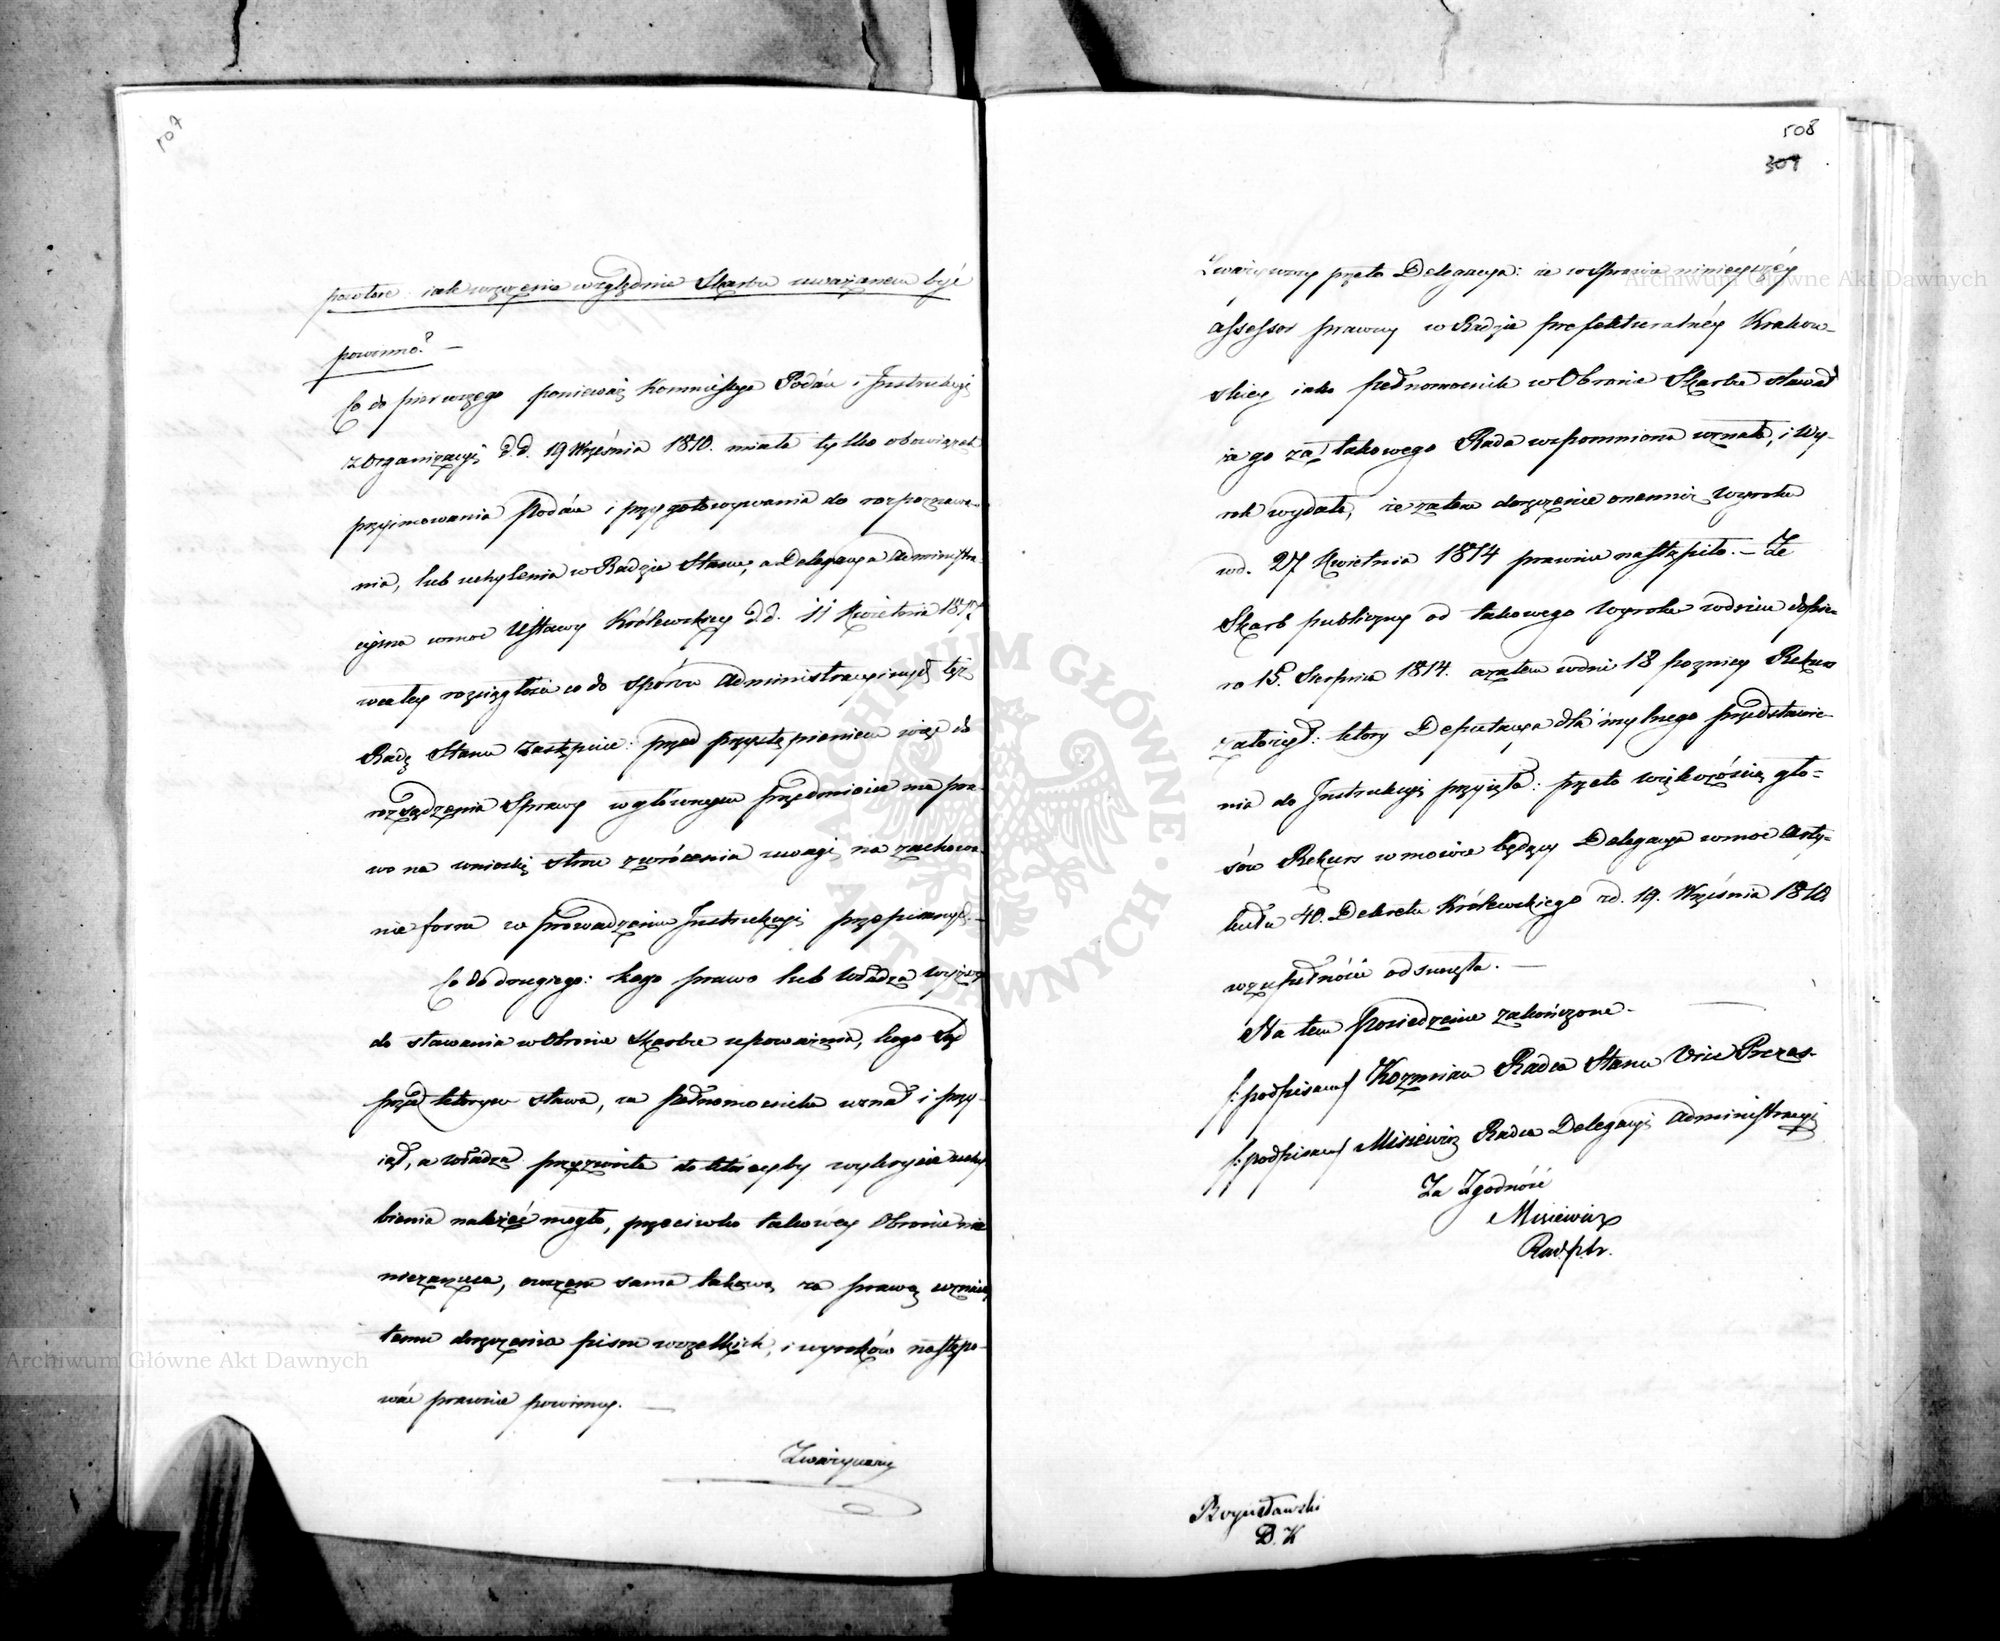 507
powtóre: iak wręczenie względnie Skarbu uważanem być
powinno? —
Co do pierwszego ponieważ Kommissya Podań i Instrukcyi
z Organizacyi d.d. 19 Września 1810. miała tylko obowiązek
przyimowania Podań i przygotowywania do rozpoznawa-
nia, lub uchylenia w Radzie Stanu, a Delegacya Administra-
cyina w moc Ustawy Królewskiey d.d. 11 Kwietnia 1817
w całey rozciągłości co do Sporów Administracyinych też
Radę Stanu zastępuie: przed przystąpieniem więc do
rozsądzenia Sprawy w głównym przedmiocie ma pra-
wo na wnioski stron zwrócenia uwagi na zachowa-
nie form w prowadzeniu Instrukcyi przepisanych. —
Co do drugiego: kogo prawo lub Władza wyższa
do stawania w Obronie Skarbu upoważnia, kogo Sąd
przed którym stawa, za pełnomocnika uznał i przy-
iął, a władza przyzwoita do któreyby wykrycie uchy-
bienia należeć mogło, przeciwko takowéy Obronie nic
niezarzuca, owszem sama takową za prawą uznaie,
temu doręczenia pism wszelkich, i wyroków nastepo-
wać prawnie powinny. —
Zważywszy
508
307
Zważywszy przeto Delegacya: że w Sprawie ninieyszéy
Assessor prawny w Radzie prefekturalnéy Krakow-
skiey iako pełnomocnik w Obronie Skarbu stawał
że go za takowego Rada wspomniona uznała, i Wy-
rok wydała, że zatem doręczenie onemuż Wyroku
w d. 27 Kwietnia 1814 prawnie nastąpiło. — Że
Skarb publiczny od takowego Wyroku w dniu dopie-
ro 15. Sierpnia 1814. a zatem w dni 18 pozniey Rekurs
założył: który Deputacya dla mylnego przedstawie-
nia do Instrukcyi przyięła: przeto większością gło-
sów Rekurs w mowie będący Delegacya w moc Arty-
kułu 40. Dekretu Królewskiego z d. 19. Września 1810
w zupełności odsunęła. —
Na tem Posiedzenie zakończone. —
/:podpisany/ Kozmian Radca Stanu Vice Prezes.
/:podpisany/ Misiewicz Radca Delegacyi Administracyi
Za Zgodność
Misiewicz
Rad.
Bogusławski
D. K
Archiwum Główne Akt Dawnych
Archiwum Główne Akt Dawnych
ARCHIWUM GŁÓWNE AKT DAWNYCH